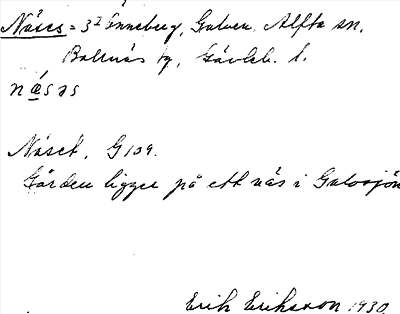 Näses = 3² Änneberg, Galven, Alfta sn,
Bollnäs tg, Gävleb. l.
næsəs
Näset, G 109.
Gården ligger på ett näs i Galvsjön
Erik Eriksson 1930.